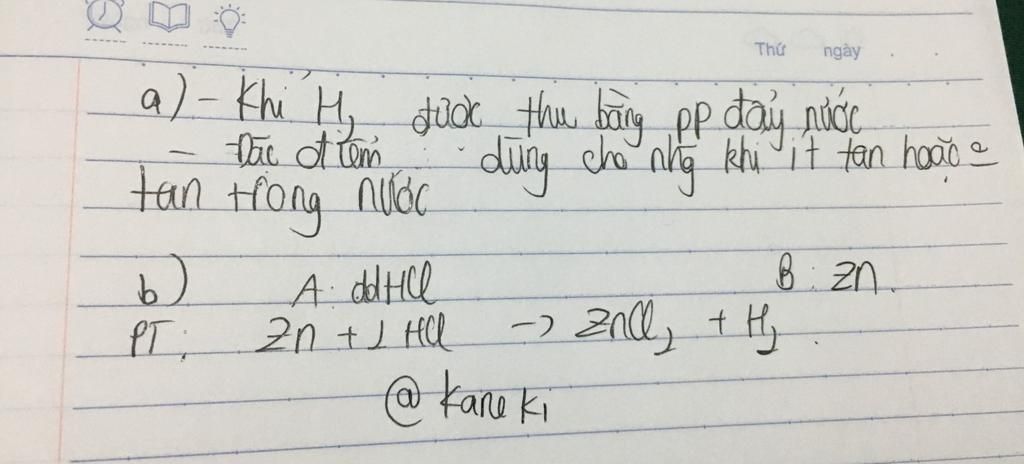 Thứ ngày
a) - Khí H₂ được thu bằng pp đẩy nước
- Đặc điểm dùng cho nhg khí ít tan hoặc
tan trong nước
b) A: ddHCl B: Zn.
PT: Zn + 2 HCl -> ZnCl₂ + H₂.
@Kaneki